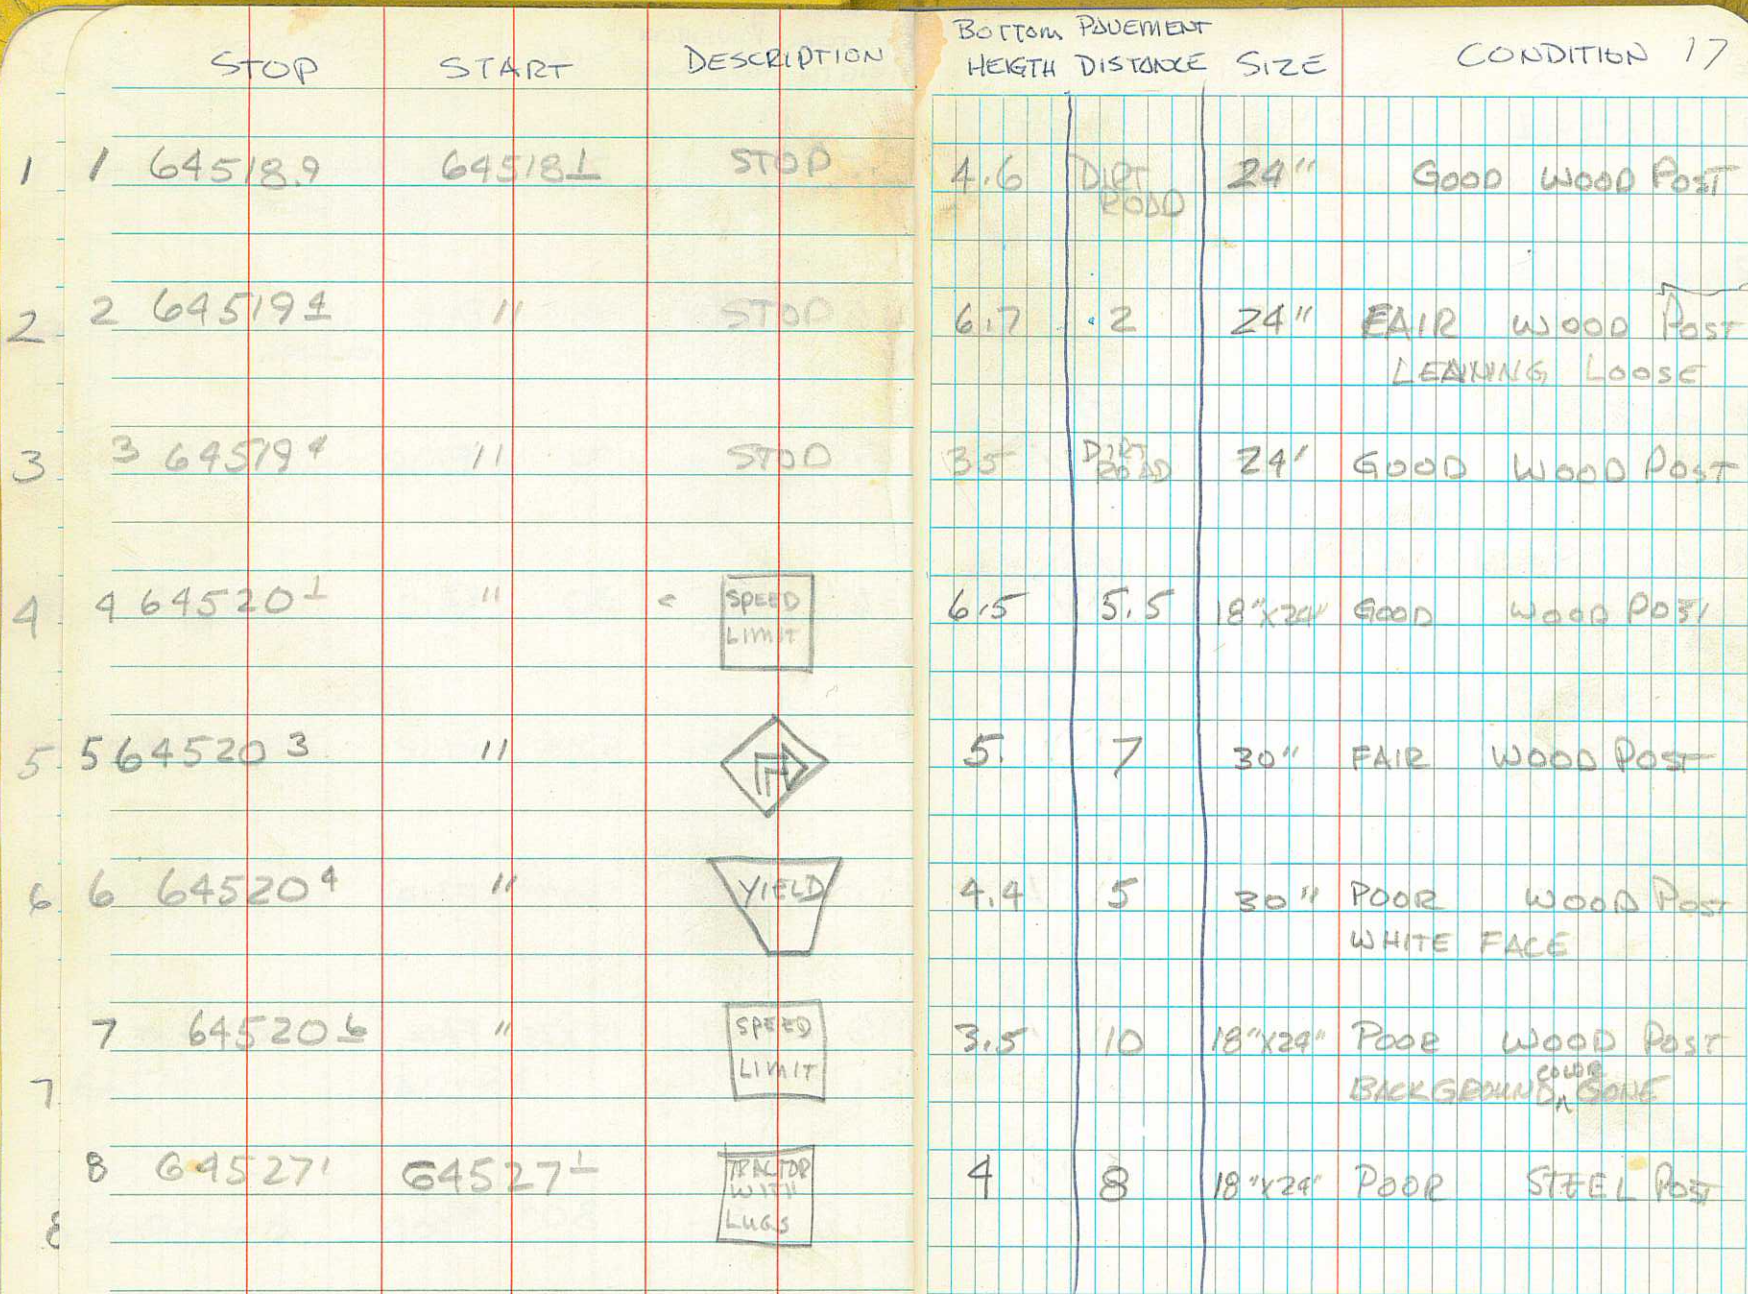 STOP START DESCRIPTION BOTTOM HEIGTH PAVEMENT DISTANCE SIZE CONDITION 17
1 1 64518.9 64518 1 STOP 4.6 DIRT ROAD 24" GOOD WOOD POST
2 2 64519 4 " STOP 6.7 .2 24" FAIR WOOD POST
LEANING LOOSE
3 3 64519 4 " STOP 35 DIRT ROAD 24' GOOD WOOD POST
4 4 64520 1 " SPEED LIMIT 6.5 5.5 18"X24" GOOD WOOD POST
5 5 64520 3 " 5. 7 30" FAIR WOOD POST
6 6 64520 4 " YIELD 4.4 5 30" POOR WOOD POST
WHITE FACE
7 64520 6 " SPEED LIMIT 3.5 10 18"X24" POOR WOOD POST
7 BACKGROUND COLOR GONE
8 64527 1 64527 1 TRACTOR WITH LUGS 4 8 18"X24" POOR STEEL POST
8